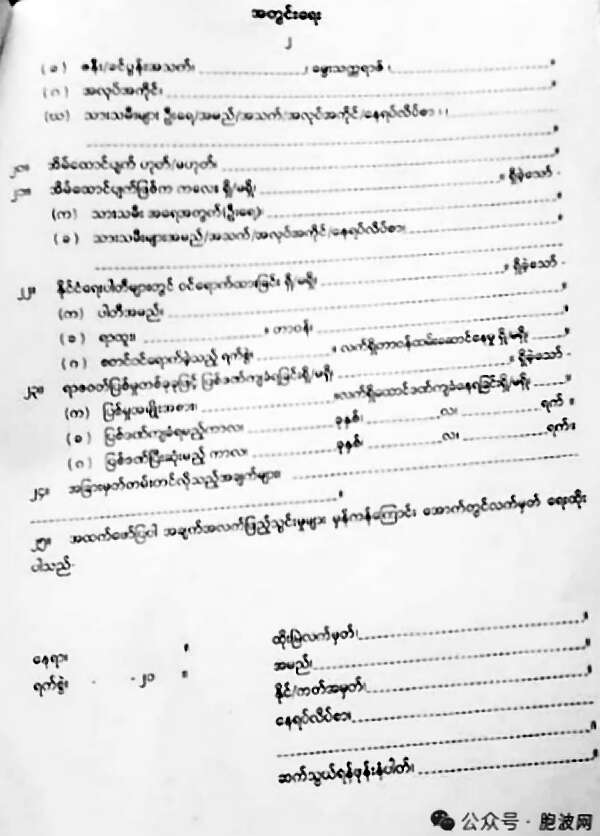 အတွင်းရေး
၂
(ခ) ဇနီး/ခင်ပွန်းအသက်၊ ၊ မွေးသက္ကရာဇ် ၊ ။
(ဂ) အလုပ်အကိုင်၊ ။
(ဃ) သားသမီးများ ဦးရေ/အမည်/အသက်/အလုပ်အကိုင်/နေရပ်လိပ်စာ ၊ ၊
။
၂၀။ အိမ်ထောင်ပျက် ဟုတ်/မဟုတ်၊ ။
၂၁။ အိမ်ထောင်ပျက်ဖြစ်က ကလေး ရှိ/မရှိ၊ ။ ရှိခဲ့သော် -
(က) သားသမီး အရေအတွက်(ဦးရေ)၊ ။
(ခ) သားသမီးများအမည်/အသက်/အလုပ်အကိုင်/နေရပ်လိပ်စာ၊
။
၂၂။ နိုင်ငံရေးပါတီများတွင် ဝင်ရောက်ထားခြင်း ရှိ/မရှိ၊ ။ ရှိခဲ့သော် -
(က) ပါတီအမည်၊ ။
(ခ) ရာထူး၊ ။ တာဝန်၊ ။
(ဂ) စတင်ဝင်ရောက်ခဲ့သည့် ရက်စွဲ၊ ။ လက်ရှိတာဝန်ထမ်းဆောင်နေမှု ရှိ/မရှိ၊ ။
၂၃။ ရာဇဝတ်ပြစ်မှုတစ်ခုခုဖြင့် ပြစ်ဒဏ်ကျခံရခြင်းရှိ/မရှိ၊ ။ ရှိခဲ့သော် -
(က) ပြစ်မှုအမျိုးအစား၊ ။လက်ရှိထောင်ဒဏ်ကျခံနေရခြင်းရှိ/မရှိ၊ ။
(ခ) ပြစ်ဒဏ်ကျခံရမည့်ကာလ၊ ခုနှစ်၊ လ၊ ရက် ။
(ဂ) ပြစ်ဒဏ်ပြီးဆုံးမည့် ကာလ၊ ခုနှစ်၊ လ၊ ရက်။
၂၄။ အခြားမှတ်တမ်းတင်လိုသည့်အချက်များ၊
။
၂၅။ အထက်ဖော်ပြပါ အချက်အလက်ဖြည့်သွင်းမှုများ မှန်ကန်ကြောင်း အောက်တွင်လက်မှတ် ရေးထိုး
ပါသည်-
ထိုးမြဲလက်မှတ်၊ ။
နေရာ၊ ။
အမည်၊ ။
ရက်စွဲ၊ - -၂၀ ။
နိုင်/ကတ်အမှတ်၊ ။
နေရပ်လိပ်စာ၊
။
ဆက်သွယ်ရန်ဖုန်းနံပါတ်၊ ။
公众号 · 胞波网